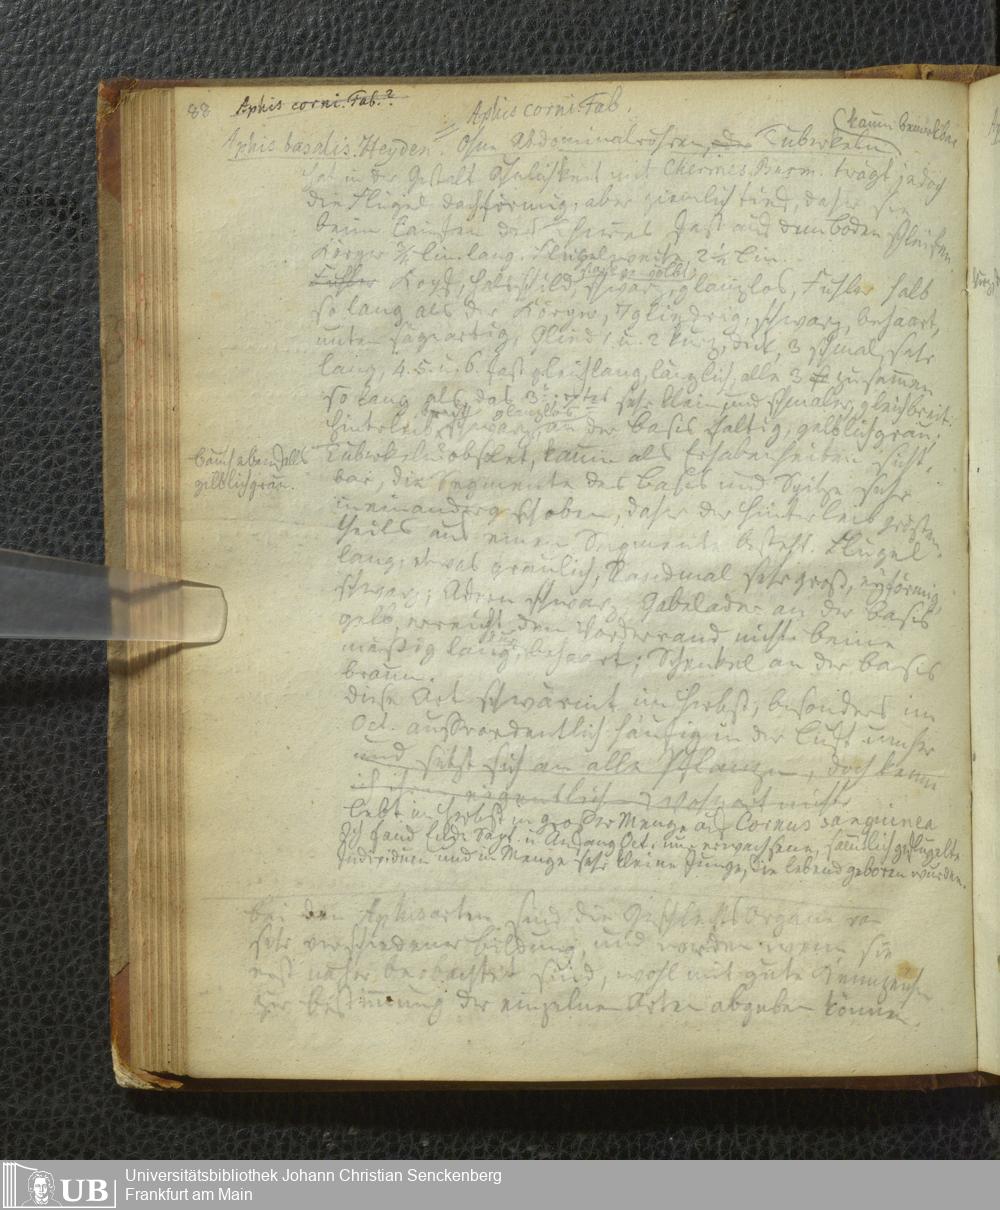 88 Aphis corni. Fab.?
Aphis corni. Fab.
kaum bemerkbar
Aphis basalis. Heyden = Ohne Abdominalröhren, Tuberkeln
hat in der Gestalt Ähnlichkeit mit Chermes Burm. trägt jedoch
die Flügel dachförmig, aber ziemlich tief, daher sie
beim Laufen des Thieres fast auf dem Boden schleifen.
Körper ¾ lin. lang. Flügelweite 2½ Lin.
Fühler Kopf, Halsschild, schwarz, glanzlos, Fühler halb
so lang als der Körper, 7 gliedrig, schwarz, behaart,
unten sägeartig, Glied 1. u. 2 kurz, dick, 3 schmal, sehr
lang, 4. 5. u. 6. fast gleichlang, länglich, alle 3 zusammen
so lang als das 3te; 7tes sehr klein und schmaler, gleichbreit.
breit glanzlos
Hinterleib schwarz, an der Basis faltig, gelblichgrau;
Bauch ebenfalls
gelblichgrau.
Tuberkeln obsolet, kaum als Erhabenheiten sicht-
bar, die Segmente des Basis und Spitze sehr
ineinandergeschoben, daher der Hinterleib grösten-
theils aus einem Segmente besteht. Flügel
lang, etwas graulich, Randmal sehr groß, eyförmig,
schwarz; Adern schwarz, Gabelader an der Basis
gelb, erreicht den Vorderrand nicht. Beine
mäßig lang, behaart; Schenkel an der Basis
braun.
Diese Art schwärmt im Herbst, besonders im
Oct. ausserordentlich häufig in der Luft umher
und setzt sich an alle Pflanzen, doch kenne
ich ihren eigentlichen Wohnort nicht.
lebt im Herbst in großer Menge auf Cornus sanguinea
Ich fand Ende Sept. u. Anfang Oct. nur erwachsene, sämtlich geflügelte
Individuen und in Menge sehr kleine Junge, die lebend geboren wurden.
Bei den Aphisarten sind die Geschlechts Organe von
sehr verschiedener Bildung, und werden wenn sie
erst näher beobachtet sind, wohl mit gute Kennzeichen
zur Bestimmung der einzelnen Arten abgeben können.
UB
Universitätsbibliothek Johann Christian Senckenberg
Frankfurt am Main